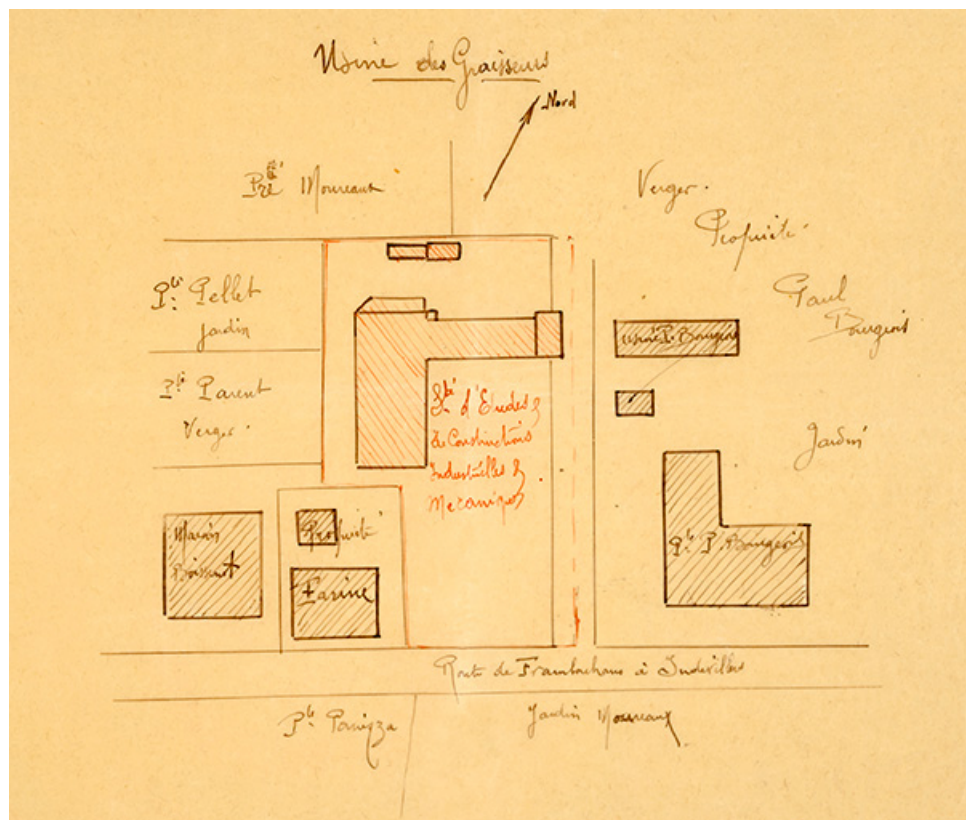 Usine des Graisseurs
Nord
Pré Moureaux
Verger.
Propriété
Paul
Bourgeois
Pté Pellet
Jardin
Pté Parent
Verger.
usine P. Bourgeois
Sté d'Etudes &
de Constructions
Industrielles &
Mécaniques
Jardin
Maison
Boissenot
Propriété
Farine
Pté P. Bourgeois
Route de Frambouhans à Indevillers
Pté Panizza
Jardin Moureaux